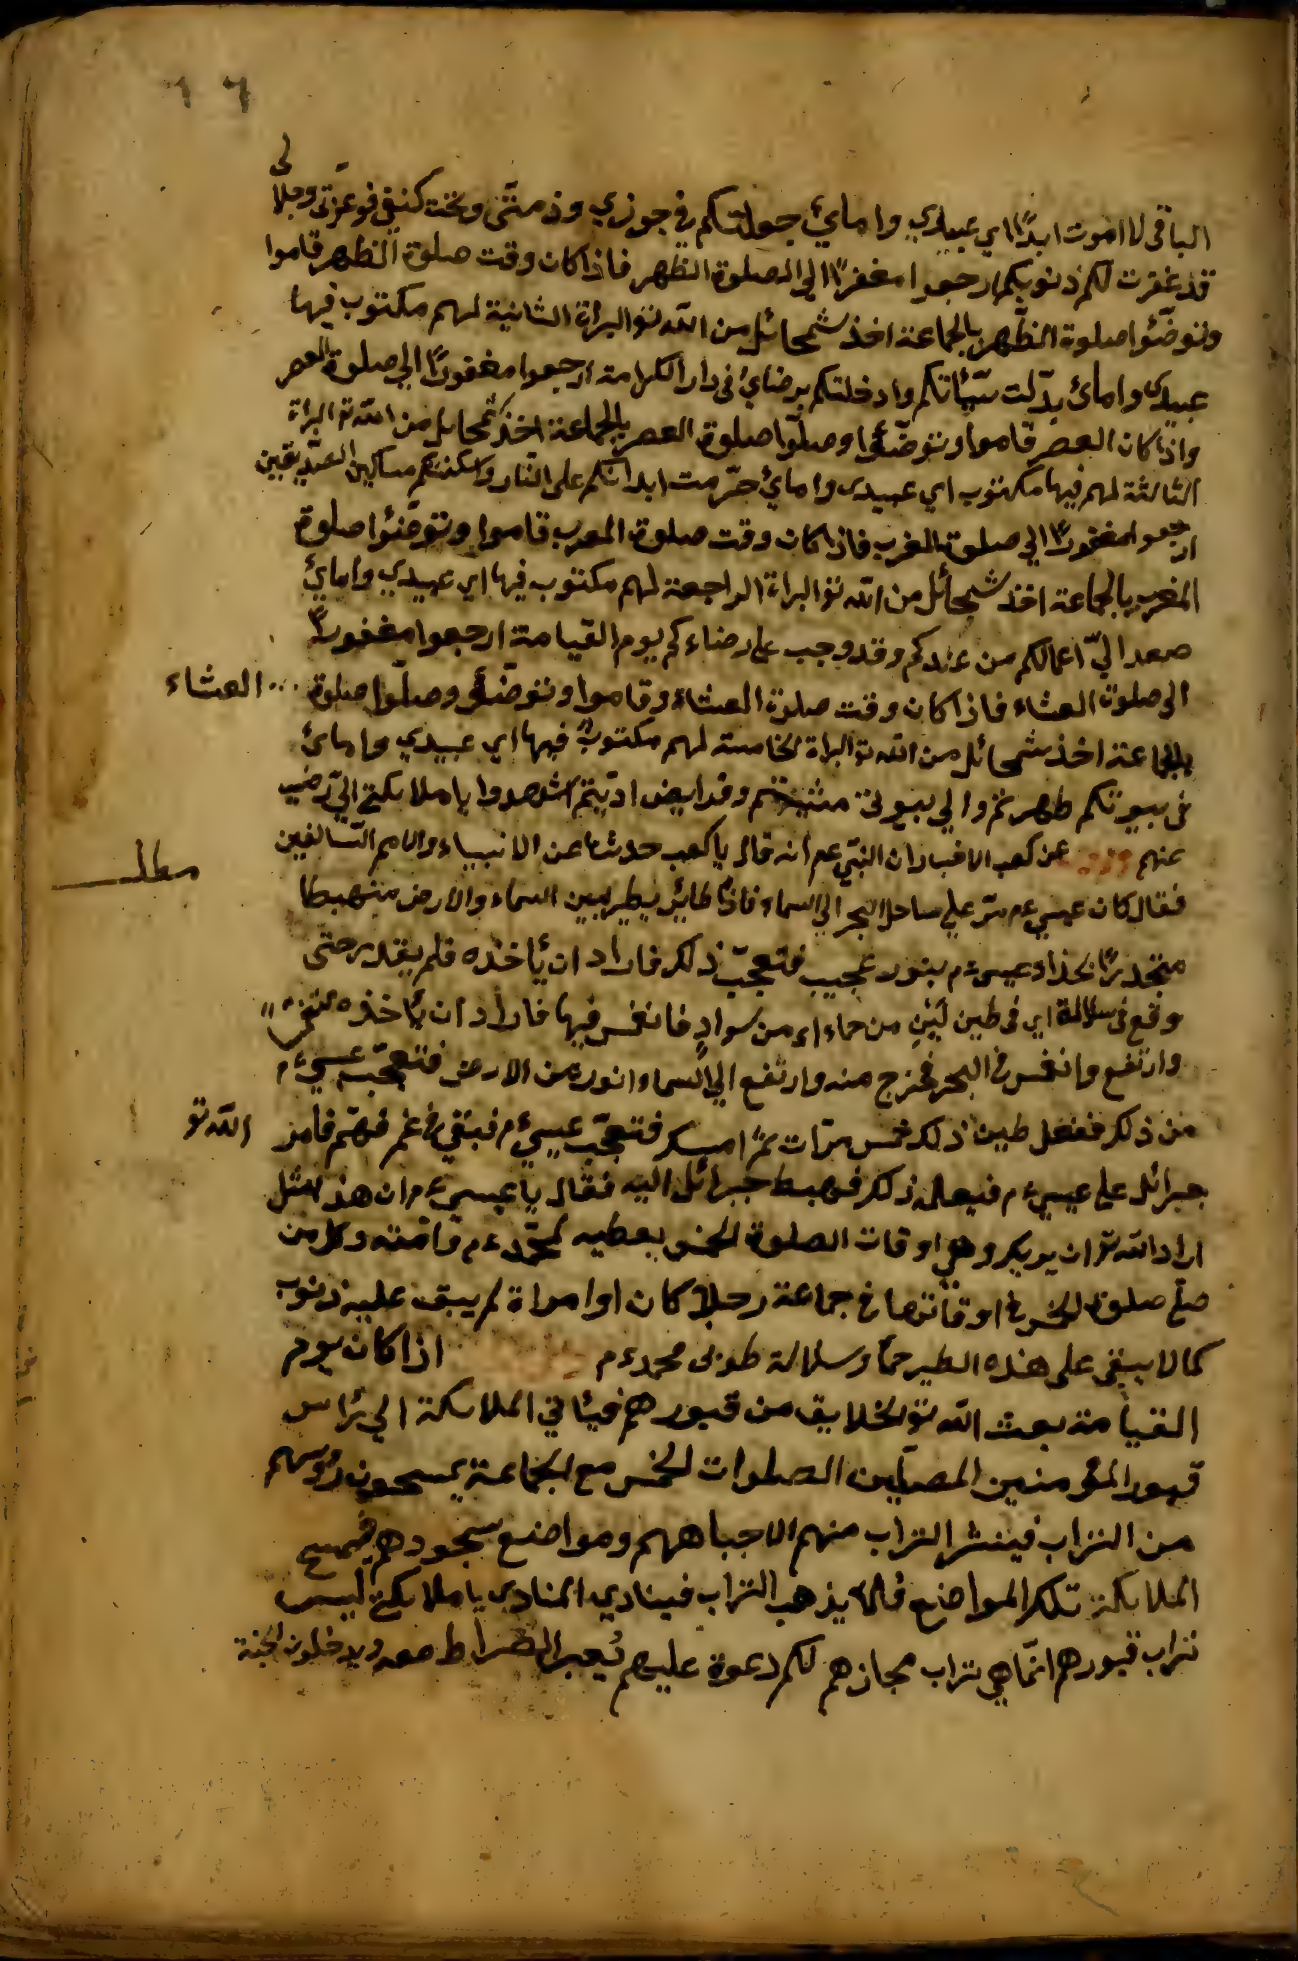 ٦٦
الباقى لا اموت ابدًا اي عبيدي وامائي جعلتكم في جوزي وذمتى وتحت كنفى فوعزتى وجلالى
قد غفرت لكم ذنوبكم ارجعوا مغفورًا الى الصلوة الظهر فاذا كان وقت صلوة الظهر قاموا
وتوضّؤا صلوة الظهر بالجماعة اخذ شمحائل من الله تع البراة الثانية لهم مكتوب فيها
عبيدى وامائ بدّلت سيّأتكم وادخلتكم برضائ فى دار الكرامة ارجعوا مغفورًا الى صلوة العصر
واذا كان العصر قاموا وتوضّؤا وصلّوا صلوة العصر بالجماعة اخذ شمحائل من الله تع البراة
الثالثة لهم فيها مكتوب اي عبيدى وامائ حرّمت ابدانكم على النّار واسكنتكم مساكين الصدّيقين
ارجعوا مغفورًا الى صلوة المغرب فاذا كان وقت صلوة المغرب قاموا وتوضّؤا صلوة
المغرب بالجماعة اخذ شمحائل من الله تع البراة الراجعة لهم مكتوب فيها اي عبيدي وامائ
صعد اليّ اعمالكم من عندكم وقد وجب على رضاءكم يوم القيامة ارجعوا مغفورًا
الى صلوة العشاء فاذا كان وقت صلوة العشاء وقاموا وتوضّؤا وصلّوا صلوة العشاء
بالجماعة اخذ شمحائل من الله تع البراة الخامسة لهم مكتوبٌ فيها اي عبيدي وامائ
فى بيوتكم طهرتم والى بيوتى مشيتم وفرايض ادّيتم اشهدوا يا ملائكتى انّى رضيت
عنهم عن كعب الاخبار ان النبّى عم انه قال يا كعب حدثنا عن الانبياء والامم السّالفين
مطلب
فقال كان عيسى عم مرّ على ساحل البحر الى السماء فاذا طائر يطير بين السماء والارض منهبطا
متحدرًا بحذاء عيسى عم بنور عجيب فتعجّب ذلك فاراد ان يأخذه فلم يقدر حتى
وقع فى سلالة اي فى طين ليّن من حماء اى من سواد فانغمس فيها فاراد ان يأخذه
وارتفع وانغمس فى البحر فخرج منه وارتفع الى السماء انور من الارض فتعجّب عيسى عم
من ذلك ففعل طين ذلك خمس مرّات ثمّ امسك فتعجّب عيسى عم فبقى فى غم فهّم فامر الله تع
جبرائل على عيسى عم فيعلمه ذلك فهبط جبرائل اليه فقال يا عيسى عم ان هذا لمثل
اراد الله تع ان يريك وهى اوقات الصلوة الخمس يعطيه لمحمّد عم وامّته وكل من
صلّى صلوة الخمس فى اوقاتها فى جماعة رجلا كان او امراة لم يبق عليه ذنوب
كما لا يبقى على هذه الطير حماً وسلالة طوبى محمد عم اذا كان يوم
القيامة بعث الله تع الخلايق من قبورهم فيأتى الملائكة الى رٔاس
قبور المؤمنين المصلّين الصلوات الخمس مع الجماعة يمسحون رؤسهم
من التراب فينشر التراب منهم الا جباههم ومواضع سجودهم فيمسح
الملائكة تلك المواضع فلا يذهب التراب فينادي المنادى يا ملائكتى ليس
تراب قبورهم انّما هى تراب مجازهم لكم دعوة عليهم يُعبر الصراط معه ويدخلون الجنة